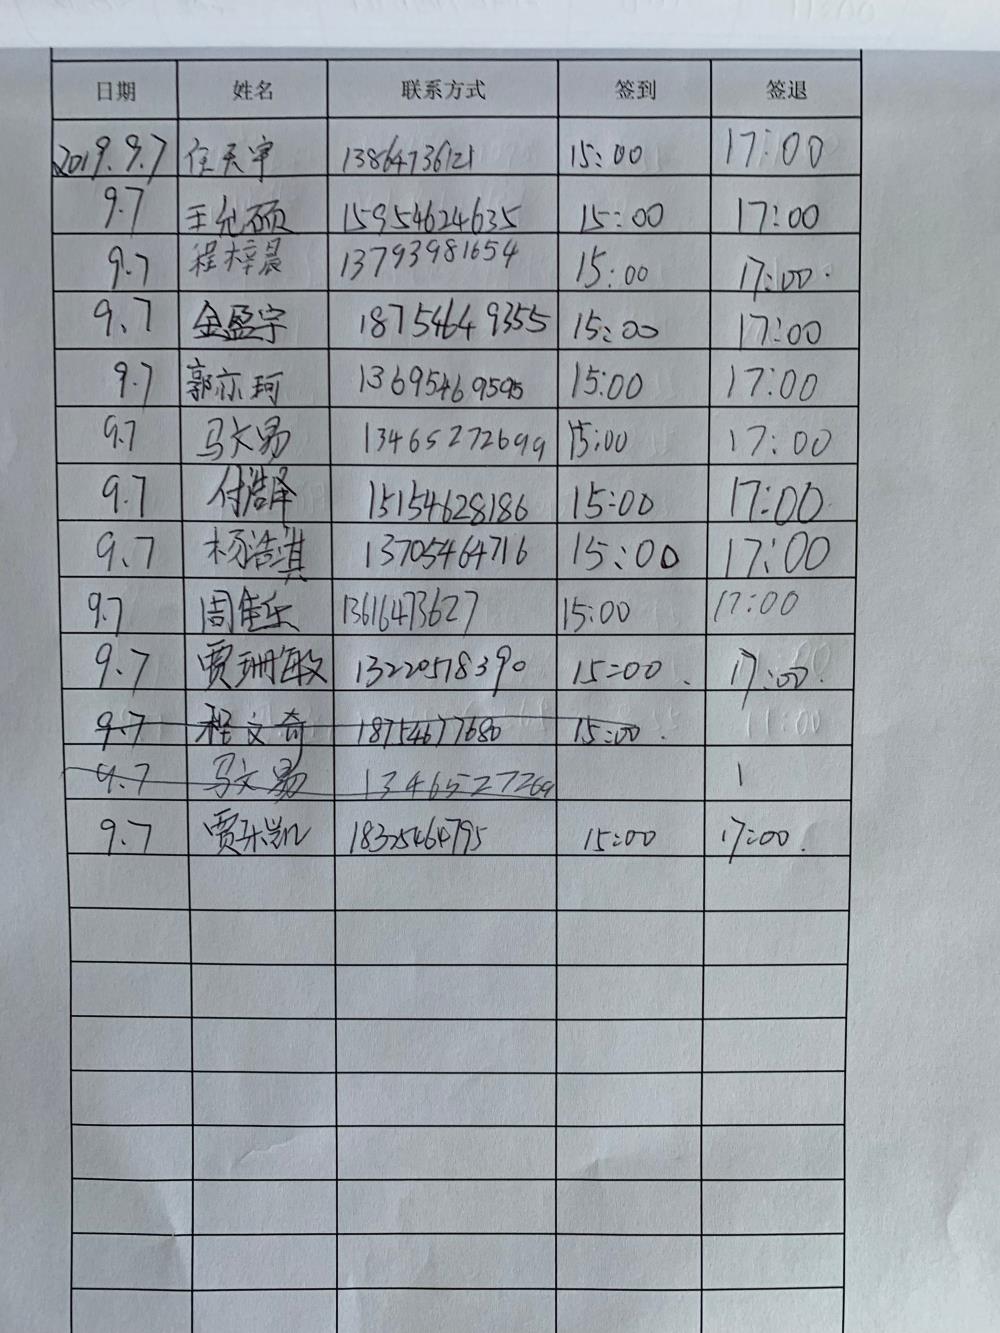 日期 姓名 联系方式 签到 签退
2019.9.7 任天宇 13864736121 15:00 17:00
9.7 王允硕 15954624635 15:00 17:00
9.7 程梓晨 13793981654 15:00 17:00.
9.7 金盈宇 18754649355 15:00 17:00
9.7 郭亦珂 13695469595 15:00 17:00
9.7 马文易 13465272699 15:00 17:00
9.7 付浩泽 15154628186 15:00 17:00
9.7 杨浩淇 13705464716 15:00 17:00
9.7 周佳乐 13616473627 15:00 17:00
9.7 贾珊敏 13220578390 15:00. 17:00.
9.7 程文奇 18754677680 15:00.
9.7 马文易 1346527269 1
9.7 贾乐凯 18325464795 15:00 17:00.